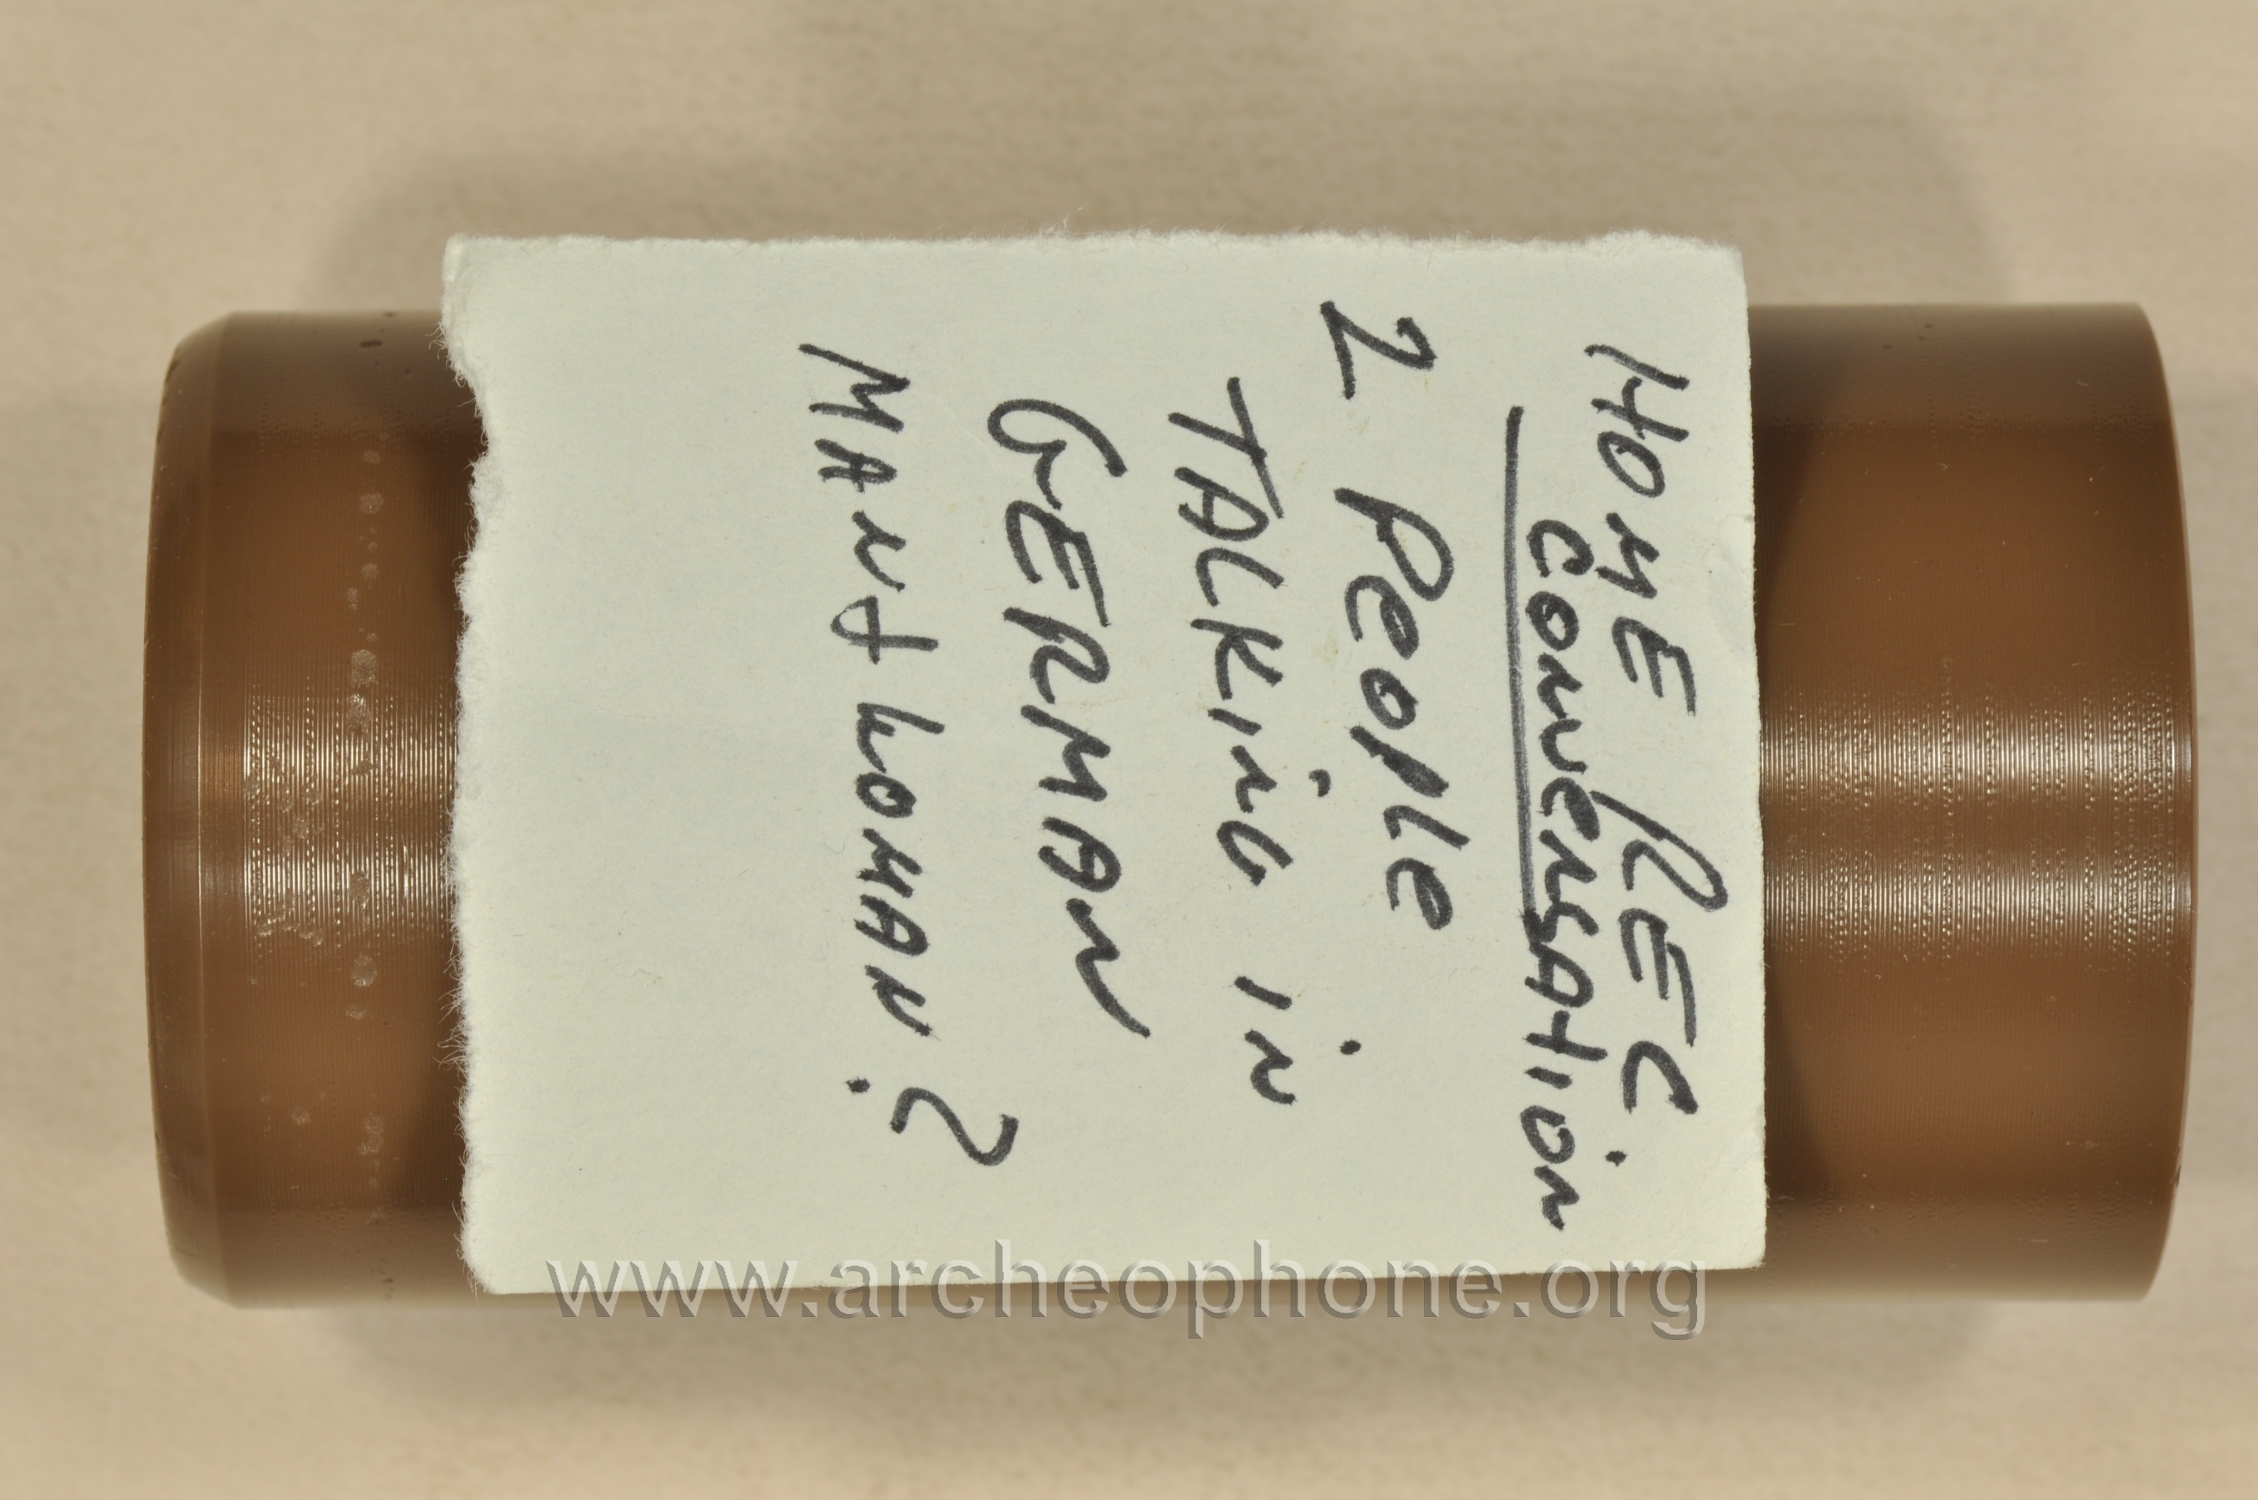 HOME REC.
CONVERSATION
2 People
TALKING IN
GERMAN
MAN + WOMAN?
www.archeophone.org